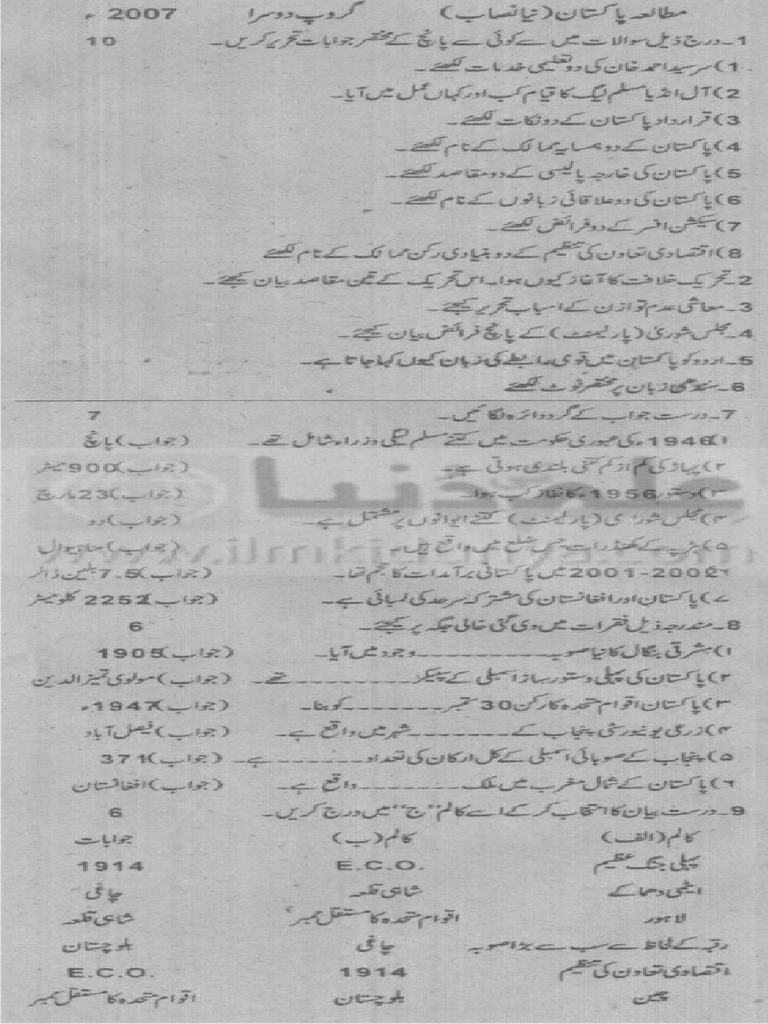 مطالعہ پاکستان (نیا نصاب) گروپ دوسرا 2007ء
1۔ درج ذیل سوالات میں سے کوئی سے پانچ کے مختصر جوابات تحریر کریں۔ 10
1) سرسید احمد خان کی دو تعلیمی خدمات لکھئے۔
2) آل انڈیا مسلم لیگ کا قیام کب اور کہاں عمل میں آیا۔
3) قرارداد پاکستان کے دو نکات لکھئے۔
4) پاکستان کے دو ہمسایہ ممالک کے نام لکھئے۔
5) پاکستان کی خارجہ پالیسی کے دو مقاصد لکھئے۔
6) پاکستان کی دو علاقائی زبانوں کے نام لکھئے۔
7) سیکشن افسر کے دو فرائض لکھئے۔
8) اقتصادی تعاون کی تنظیم کے دو بنیادی رکن ممالک کے نام لکھئے
2۔ تحریک خلافت کا آغاز کیوں ہوا۔ اس تحریک کے تین مقاصد بیان کیجئے۔
3۔ معاشی عدم توازن کے اسباب تحریر کیجئے۔
4۔ مجلس شوریٰ (پارلیمنٹ) کے پانچ فرائض بیان کیجئے۔
5۔ اردو کو پاکستان میں قومی رابطے کی زبان کیوں کہا جاتا ہے۔
6۔ سندھی زبان پر مختصر نوٹ لکھئے
7۔ درست جواب کے گرد دائرہ لگائیں۔ 7
۱) 1946ء کی عبوری حکومت میں کتنے مسلم لیگی وزراء شامل تھے۔ (جواب) پانچ
۲) پہاڑ کی کم از کم کتنی بلندی ہوتی ہے۔ (جواب) 900 میٹر
۳) دستور 1956ء کا نفاذ کب ہوا۔ (جواب) 23 مارچ
۴) مجلس شوریٰ (پارلیمنٹ) کتنے ایوانوں پر مشتمل ہے۔ (جواب) دو
۵) ہڑپہ کے کھنڈرات جس ضلع میں واقع ہیں۔ (جواب) ساہیوال
۶) 2001-2002 میں پاکستانی برآمدات کا حجم تھا۔ (جواب) 7.5 بلین ڈالر
۷) پاکستان اور افغانستان کی مشترکہ سرحد کی لمبائی ہے۔ (جواب) 2252 کلومیٹر
8۔ مندرجہ ذیل فقرات میں دی گئی خالی جگہ پر کیجئے۔ 6
۱) مشرقی بنگال کا نیا صوبہ ---------- وجود میں آیا۔ (جواب) 1905
۲) پاکستان کی پہلی دستور ساز اسمبلی کے سپیکر ---------- تھے۔ (جواب) مولوی تمیز الدین
۳) پاکستان اقوام متحدہ کا رکن 30 ستمبر ------- کو بنا۔ (جواب) 1947ء
۴) زرعی یونیورسٹی پنجاب کے ------- شہر میں واقع ہے۔ (جواب) فیصل آباد
۵) پنجاب کے صوبائی اسمبلی کے کل ارکان کی تعداد ------- ہے۔ (جواب) 371
۶) پاکستان کے شمال مغرب میں ملک ------- واقع ہے۔ (جواب) افغانستان
9۔ درست بیان کا انتخاب کر کے اسے کالم "ج" میں درج کریں۔ 6
کالم (الف) کالم (ب) جوابات
پہلی جنگ عظیم E.C.O. 1914
ایٹمی دھماکے شاہی قلعہ چاغی
لاہور اقوام متحدہ کا مستقل ممبر شاہی قلعہ
رقبہ کے لحاظ سے سب سے بڑا صوبہ چاغی بلوچستان
اقتصادی تعاون کی تنظیم 1914 E.C.O.
چین بلوچستان اقوام متحدہ کا مستقل ممبر